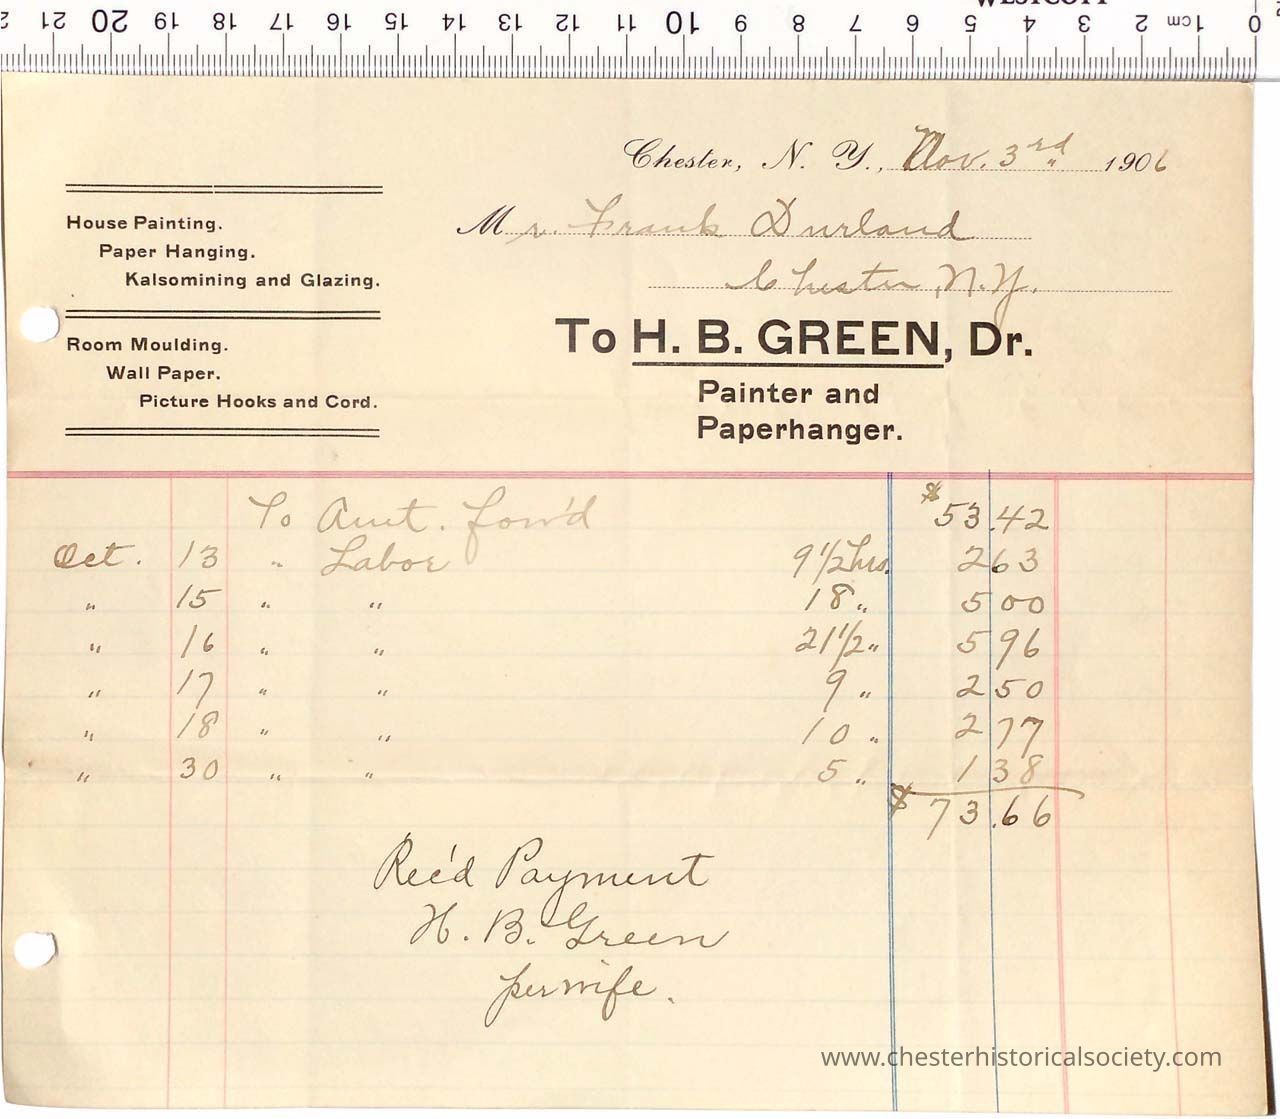 WESTCOTT
0 1 cm 2 3 4 5 6 7 8 9 10 11 12 13 14 15 16 17 18 19 20 21 2
Chester, N. Y., Nov. 3rd 1906
Mr. Frank Durland
Chester, N.Y.
House Painting.
Paper Hanging.
Kalsomining and Glazing.
Room Moulding.
Wall Paper.
Picture Hooks and Cord.
To H. B. GREEN, Dr.
Painter and
Paperhanger.
To Amt. forw'd $53.42
Oct. 13 " Labor 9 1/2 hrs. 2 63
" 15 " " 18 " 5 00
" 16 " " 21 1/2 " 5 96
" 17 " " 9 " 2 50
" 18 " " 10 " 2 77
" 30 " " 5 " 1 38
$73.66
Rec'd Payment
H. B. Green
per wife.
www.chesterhistoricalsociety.com